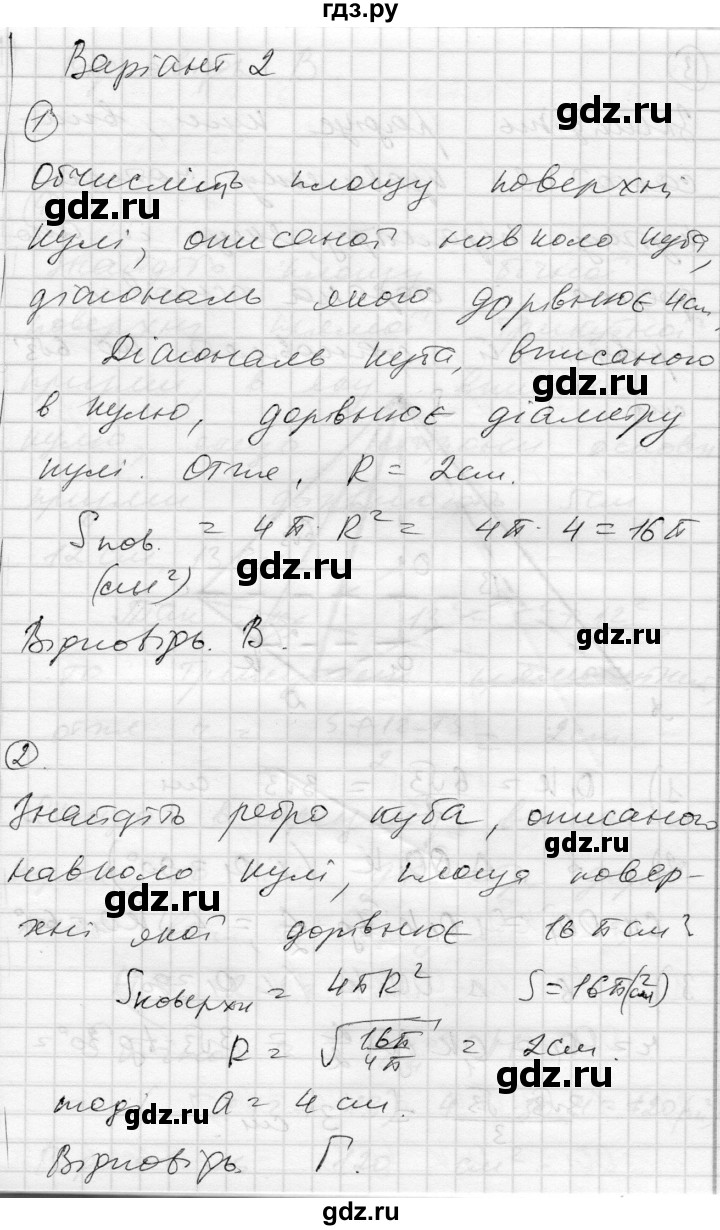 гдз.ру
Варіант 2
gdz.ru
1)
Обчисліть площу поверхні
gdz.ru
кулі, описаної навколо куба,
діагональ якого дорівнює 4см.
Діагональ куба, вписаного
gdz.ru
в кулю, дорівнює діаметру
кулі. Отже, R = 2см.
Sпов. = 4π · R² = 4π · 4 = 16π
gdz.ru
(см²)
Відповідь. В.
gdz.ru
2.
Знайдіть ребро куба, описаного
gdz.ru
навколо кулі, площа повер-
gdz.ru
хні якої дорівнює 16π см²
Sповерхн = 4πR² S = 16π(см²)
R = √(16π/4π) = 2см.
gdz.ru
тоді a = 4 см.
gdz.ru
Відповідь Г.